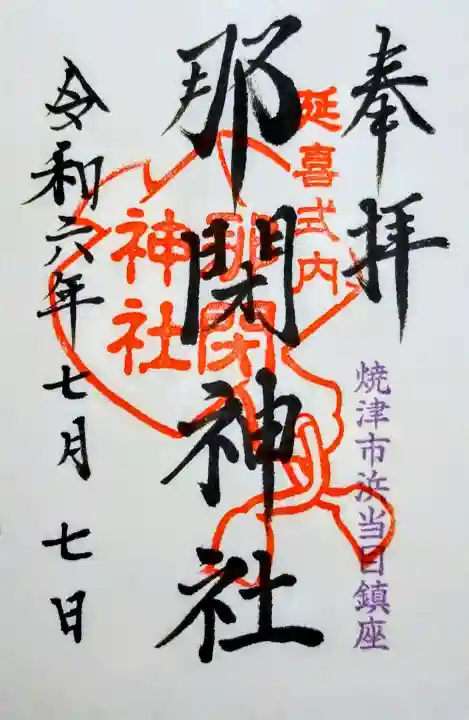 奉拝
延喜式内
焼津市浜当目鎮座
那閇神社
那閇
神社
令和六年七月七日